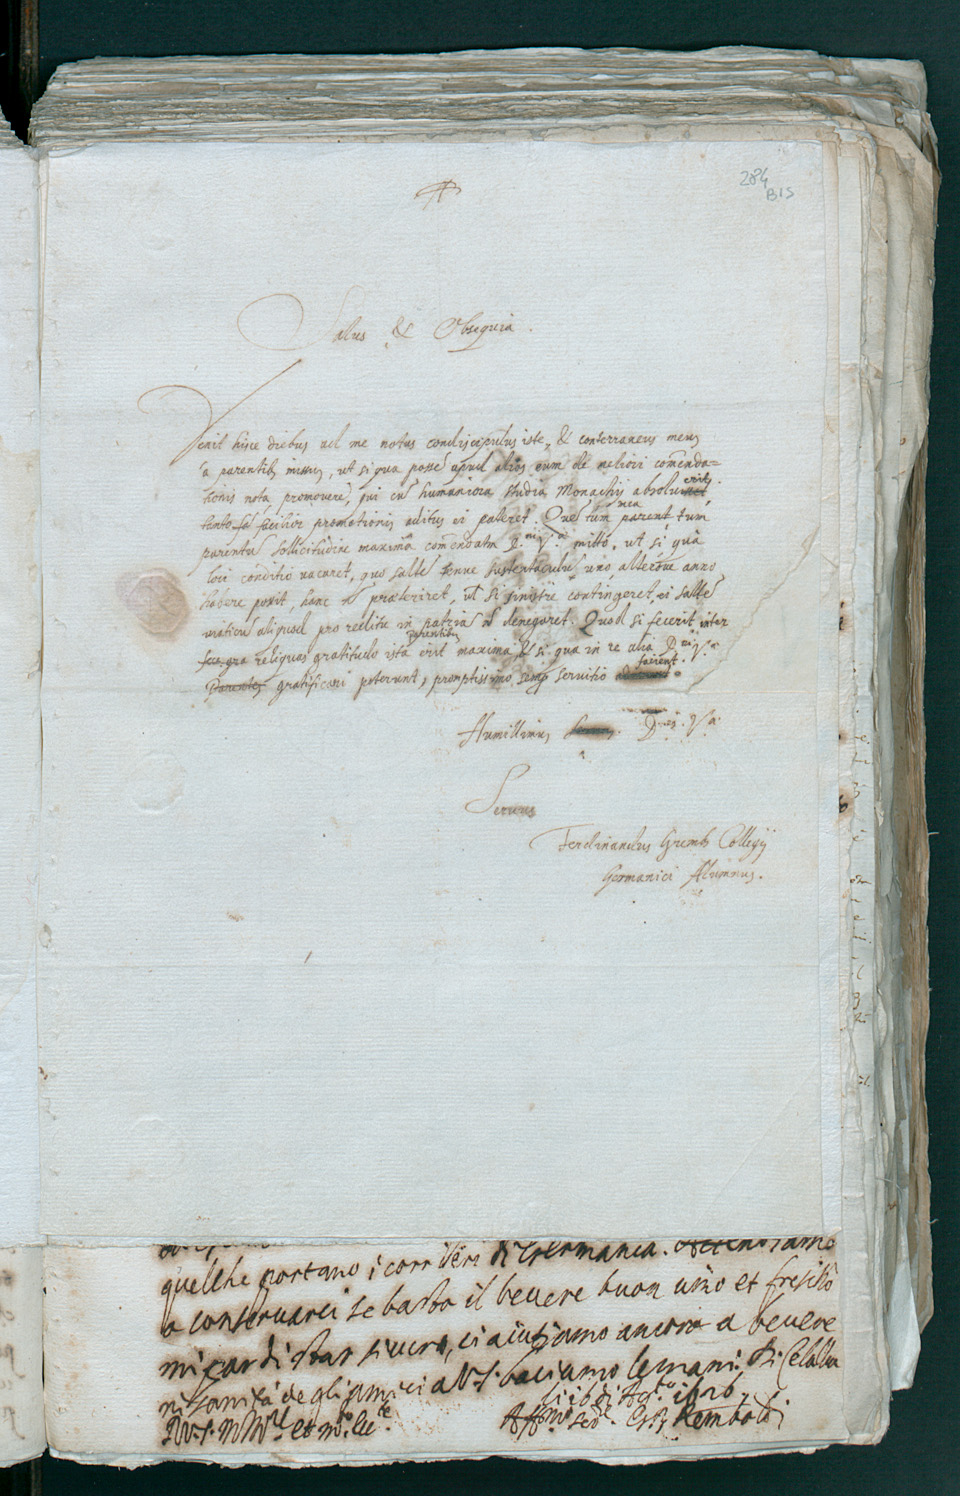 284
BIS
Salus & Obsequia.
Venit hisce diebus ad me notus condiscipulus iste, & conterraneus meus
a parentibus missus, ut si qua posse apud alios eum de meliori comenda=
tionis nota promovere, qui cu humaniora studia Monachij absoluisset erit.
tanto facilior promotionis aditus ei pateret. Que tum mea parent tum
parentu sollicitudine maxima comendatu D.ni V.ae mitto, ut si qua
loci conditio vacaret, quo salte tenue sustentaculu uno alterove anno
habere possit, hanc no præteriret, ut si sinistre contingeret, ei salte
viaticu aliquod pro reditu in patria no denegaret. Quod si fecerit inter
reliquas gratitudo ista erit parentibus maxima & si qua in re alia D.ni V.ae
Parentes gratificari poterunt, promptissimo semp servitio facient.
Humillimus D V.ae
Servus
Ferdinandus Grumb Collegij
Germanici Alumnus.
quelche portano i corrieri di Germania.
a conservarci se basta il bevere buon vino et fresco
mi car di star sicuro, ci aiutiamo ancora a bevere
ni sanità degli amici a V.S. baciamo le mani. Di
li di Ag.to 1616.
D.V.S. M
Aff.mo Ser. Rembold